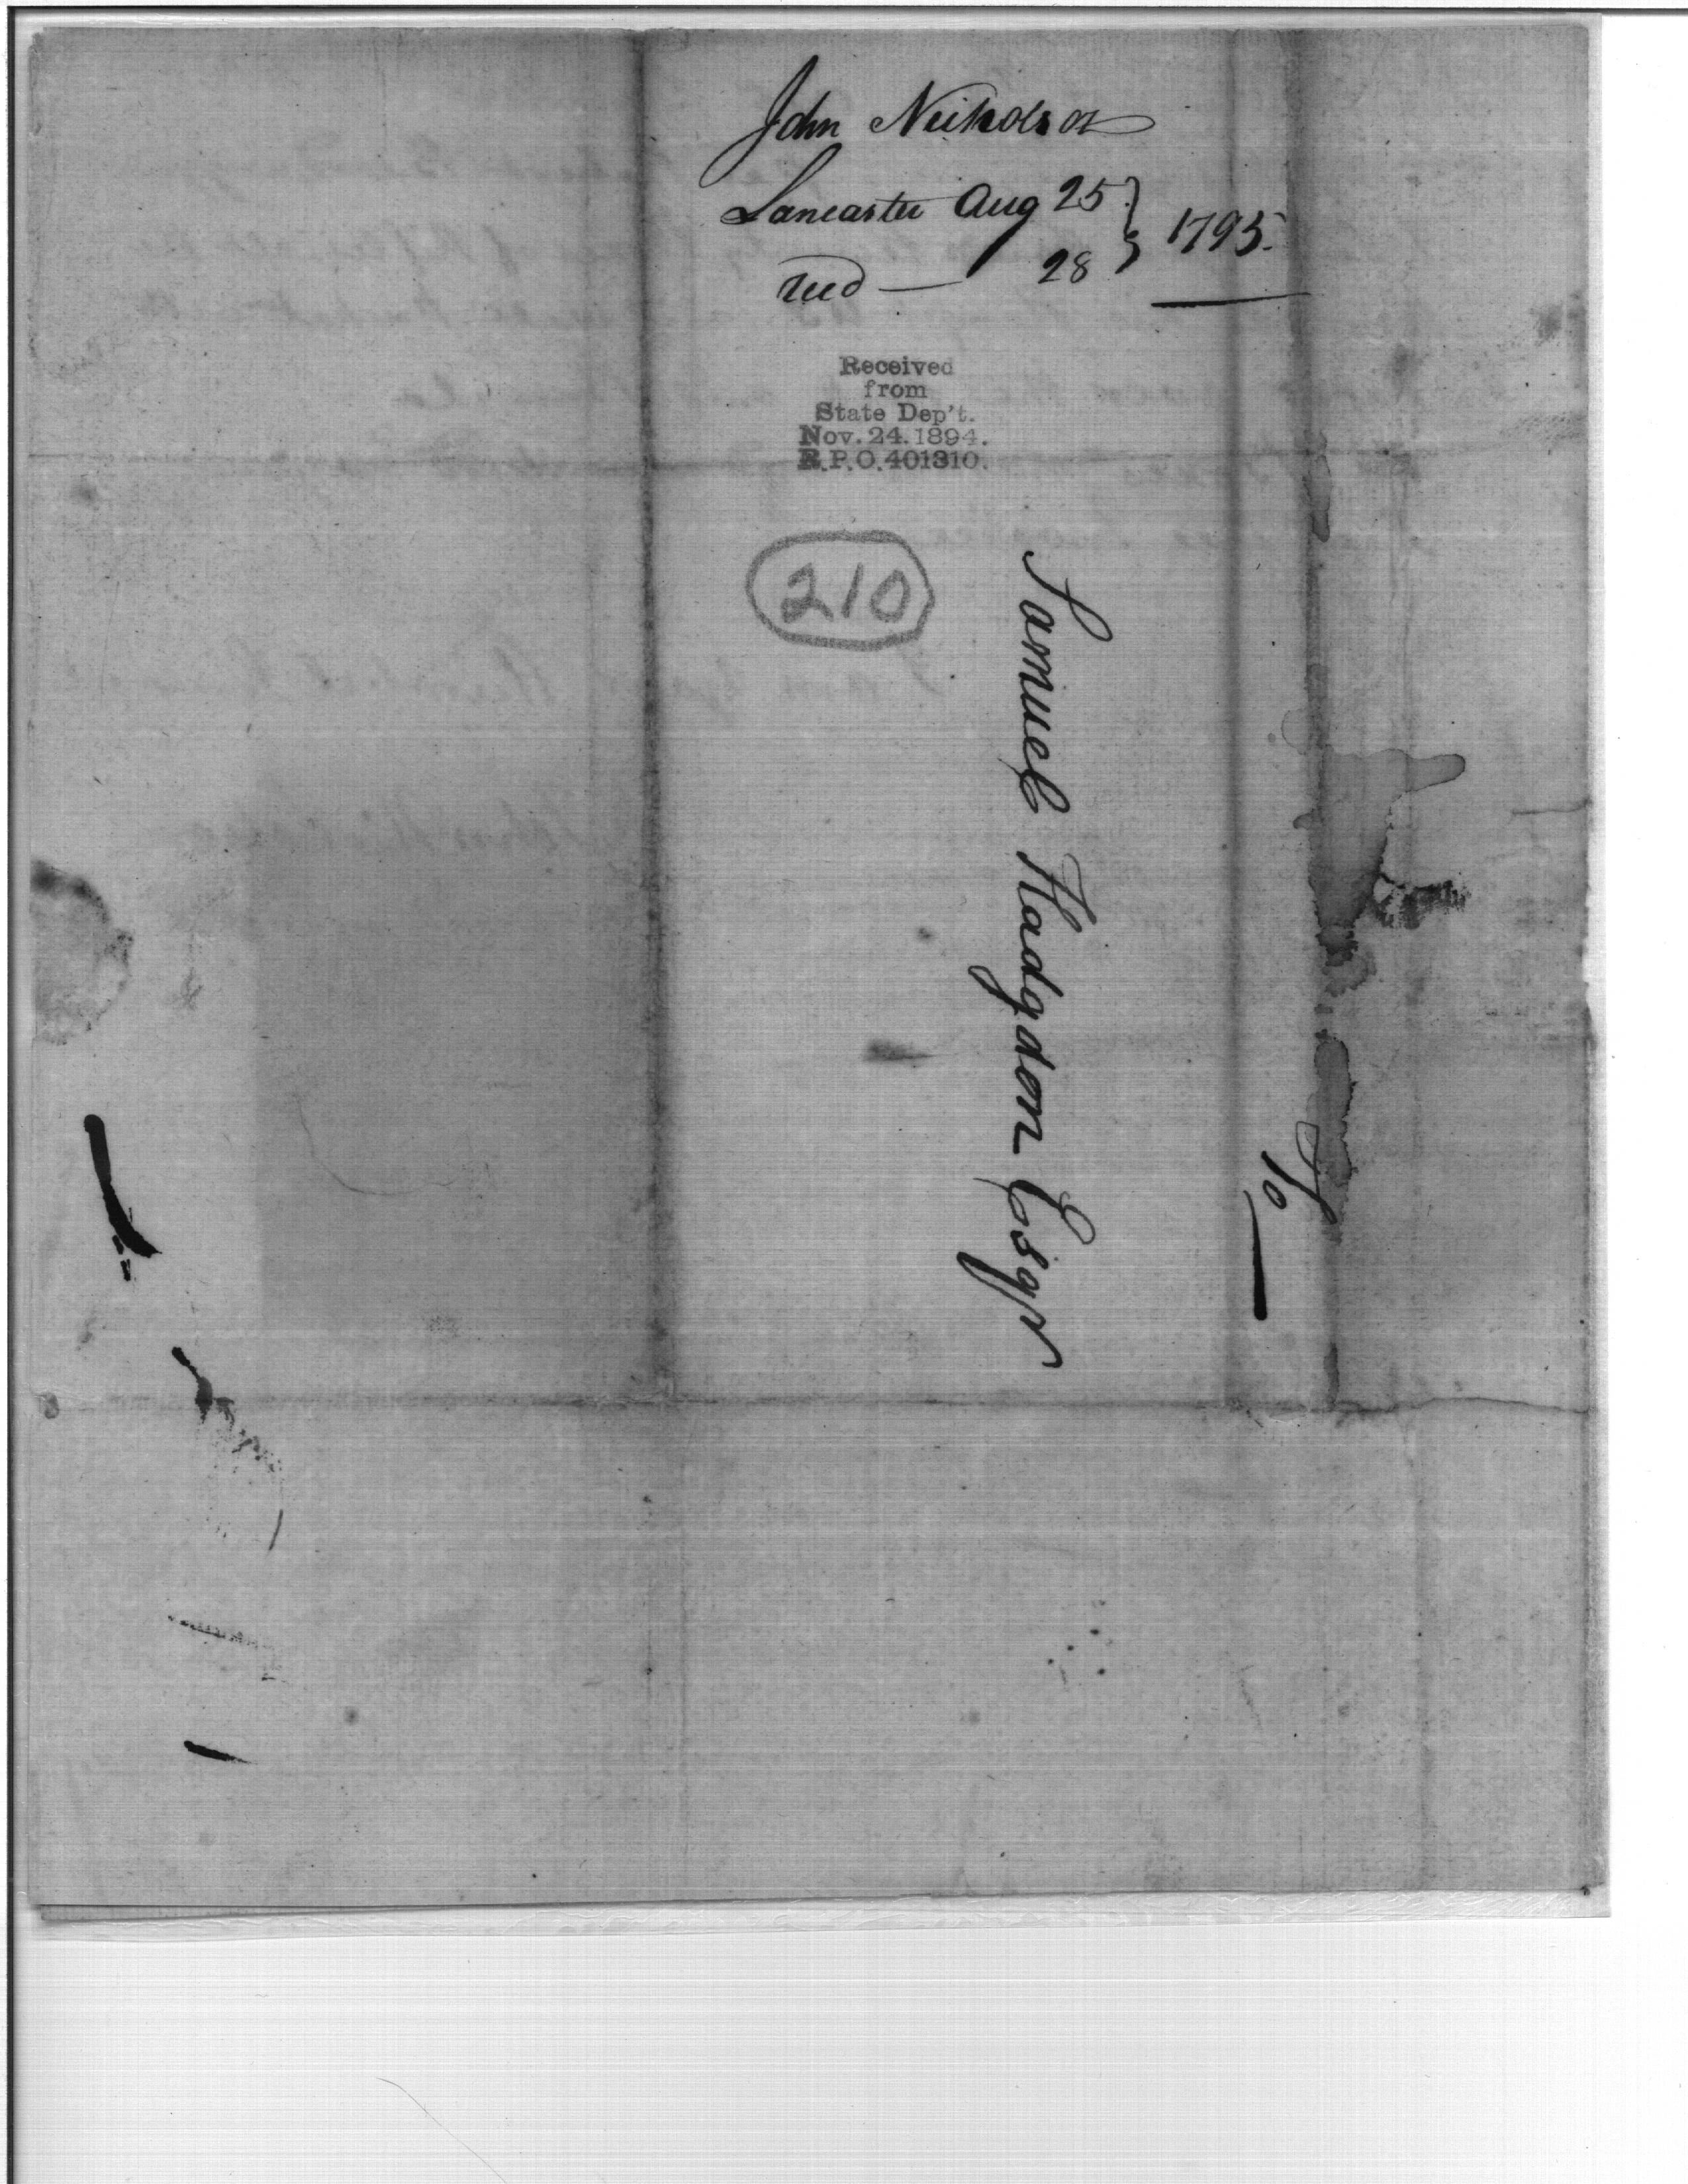 John Nicholson
Lancaster Aug 25 } 1795.
recd — 28
Received
from
State Dep't.
Nov. 24. 1894.
R.P.O. 401310.
210
Samuel Hadgdon Esqr